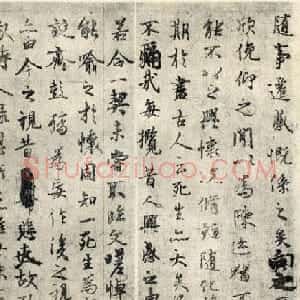 隨事遷感慨係之矣向之
欣俛仰之閒以為陳迹猶不
能不以之興懷況脩短隨化
期於盡古人云死生亦大矣
不痛哉每攬昔人興感之由
若合一契未嘗不臨文嗟悼
能喻之於懷固知一死生為
誕齊彭殤為妄作後之視
由今之視昔悲夫故列
Shufaziliao.com